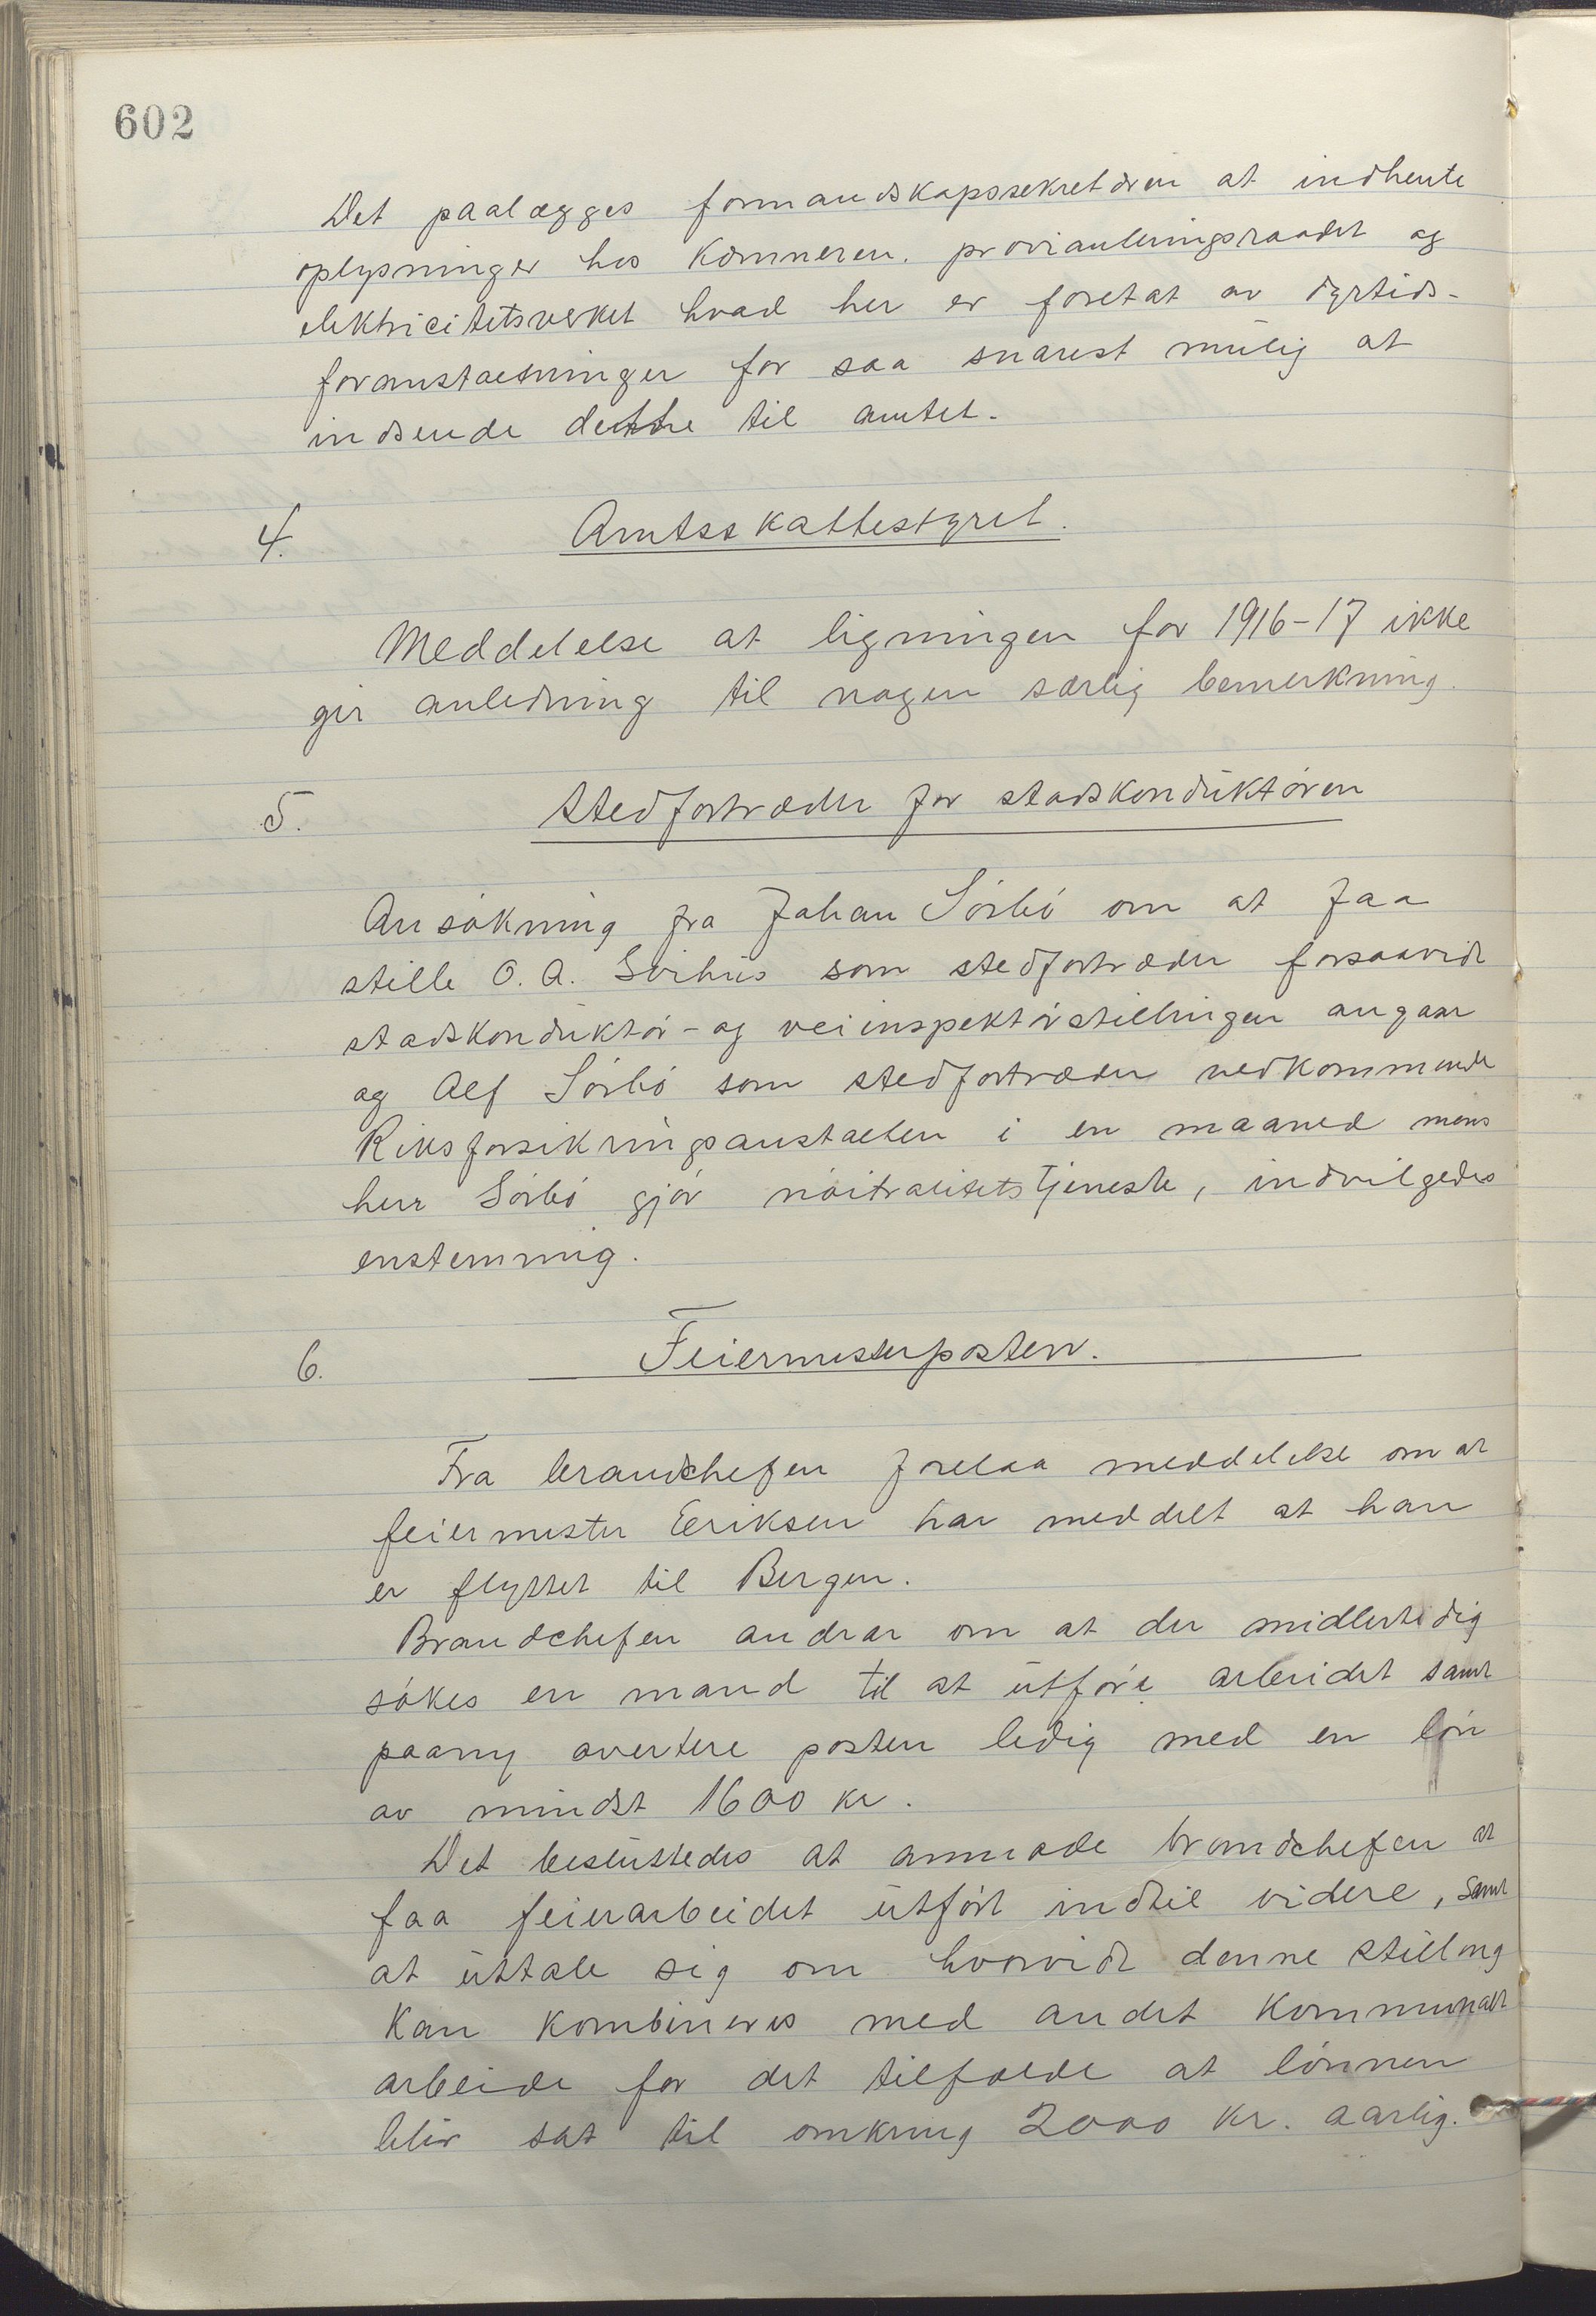 602
Det paalægges formandskapssekretæren at indhente
oplysninger hos kæmneren, provianteringsraadet og
elektricitetsverket hvad her er foretat av dyrtids-
foranstaltninger for saa snarest mulig at
indsende dette til amtet.
4. Amtsskattestyret.
Meddelelse at ligningen for 1916-17 ikke
gir anledning til nogen særlig bemerkning.
5. Stedfortræder for stadskonduktøren
Ansøkning fra Johan Sörbö om at faa
stille O. A. Svihus som stedfortræder forsaavidt
stadskonduktör- og veiinspektörstillingen angaar
og Alf Sörbö som stedfortræder vedkommende
Riksforsikringsanstalten i en maaned mens
herr Sörbö gjör nöitralitetstjeneste, indvilgedes
enstemmig.
6. Feiermesterposten.
Fra brandchefen forelaa meddelelse om at
feiermester Eriksen har meddelt at han
er flyttet til Bergen.
Brandchefen andrar om at der midlertidig
sökes en mand til at utföre arbeidet samt
paany avertere posten ledig med en lön
av mindst 1600 kr.
Det besluttedes at anmode brandchefen at
faa feierarbeidet utfört indtil videre, samt
at uttale sig om hvorvidt denne stilling
kan kombineres med andet kommunalt
arbeide for det tilfælde at lönnen
blir sat til omkring 2000 kr. aarlig.